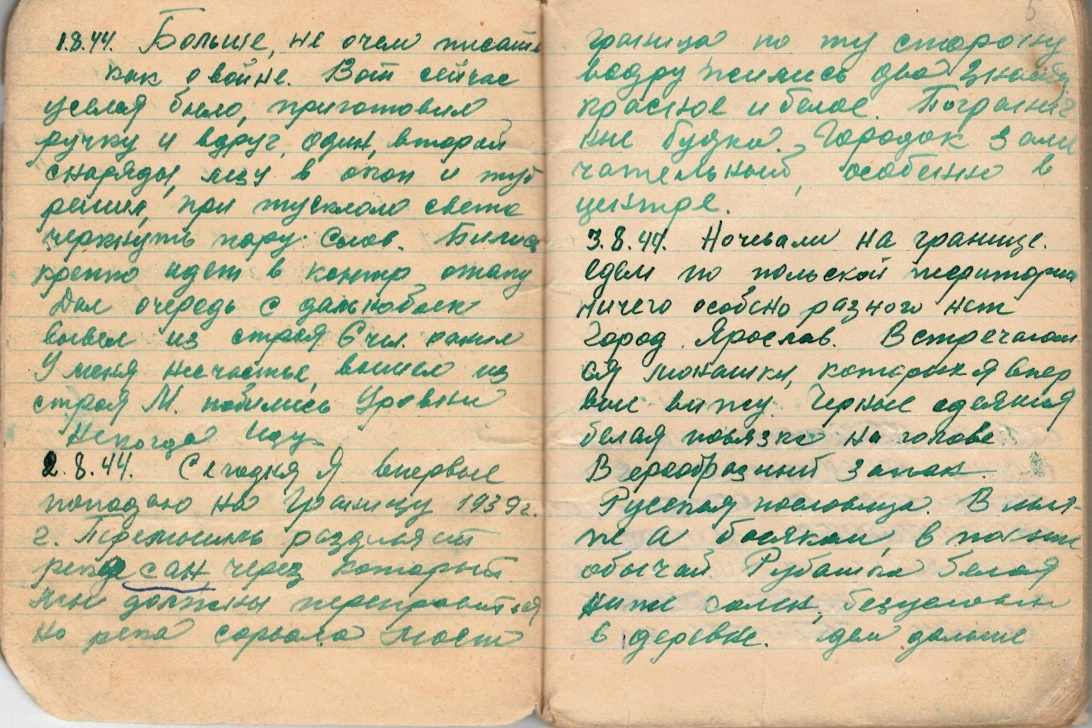 1.8.44. Больше, не очем писать
как о войне. Вот сейчас
уселся было, приготовил
ручку и вдруг, один, второй
снаряды, лезу в окоп и тут
решил, при тусклом свете
черкнуть пару слов. Битва
крепко идет в контр атаку
Дал очередь с дальнобоек
вывел из строя 6 чел. ранил
У меня несчастье, вышел из
строя М. побились уровни
Некогда Иду
2.8.44. Сегодня я впервые
попадаю на Границу 1939г.
г. Перемышль разделяет
река сан через который
мы должны переправиться
но река сорвала мост
5
граница по ту сторону
водружились два знамя
красное и белое. Погранич
ные будки. Городок заме
чательный, особенно в
центре.
3.8.44. Ночевали на границе.
едем по польской территории
ничего особено разного нет
Город Ярослав. Встречаем
ся монашки, которых я впер
вые вижу. Черные одеяния
белая повязка на голове
Своеобразный запах.
Русская пословица. В
же а босяком, в
обычай. Рубашка белая
ниже колен, безусловно
в деревне. едем дальше